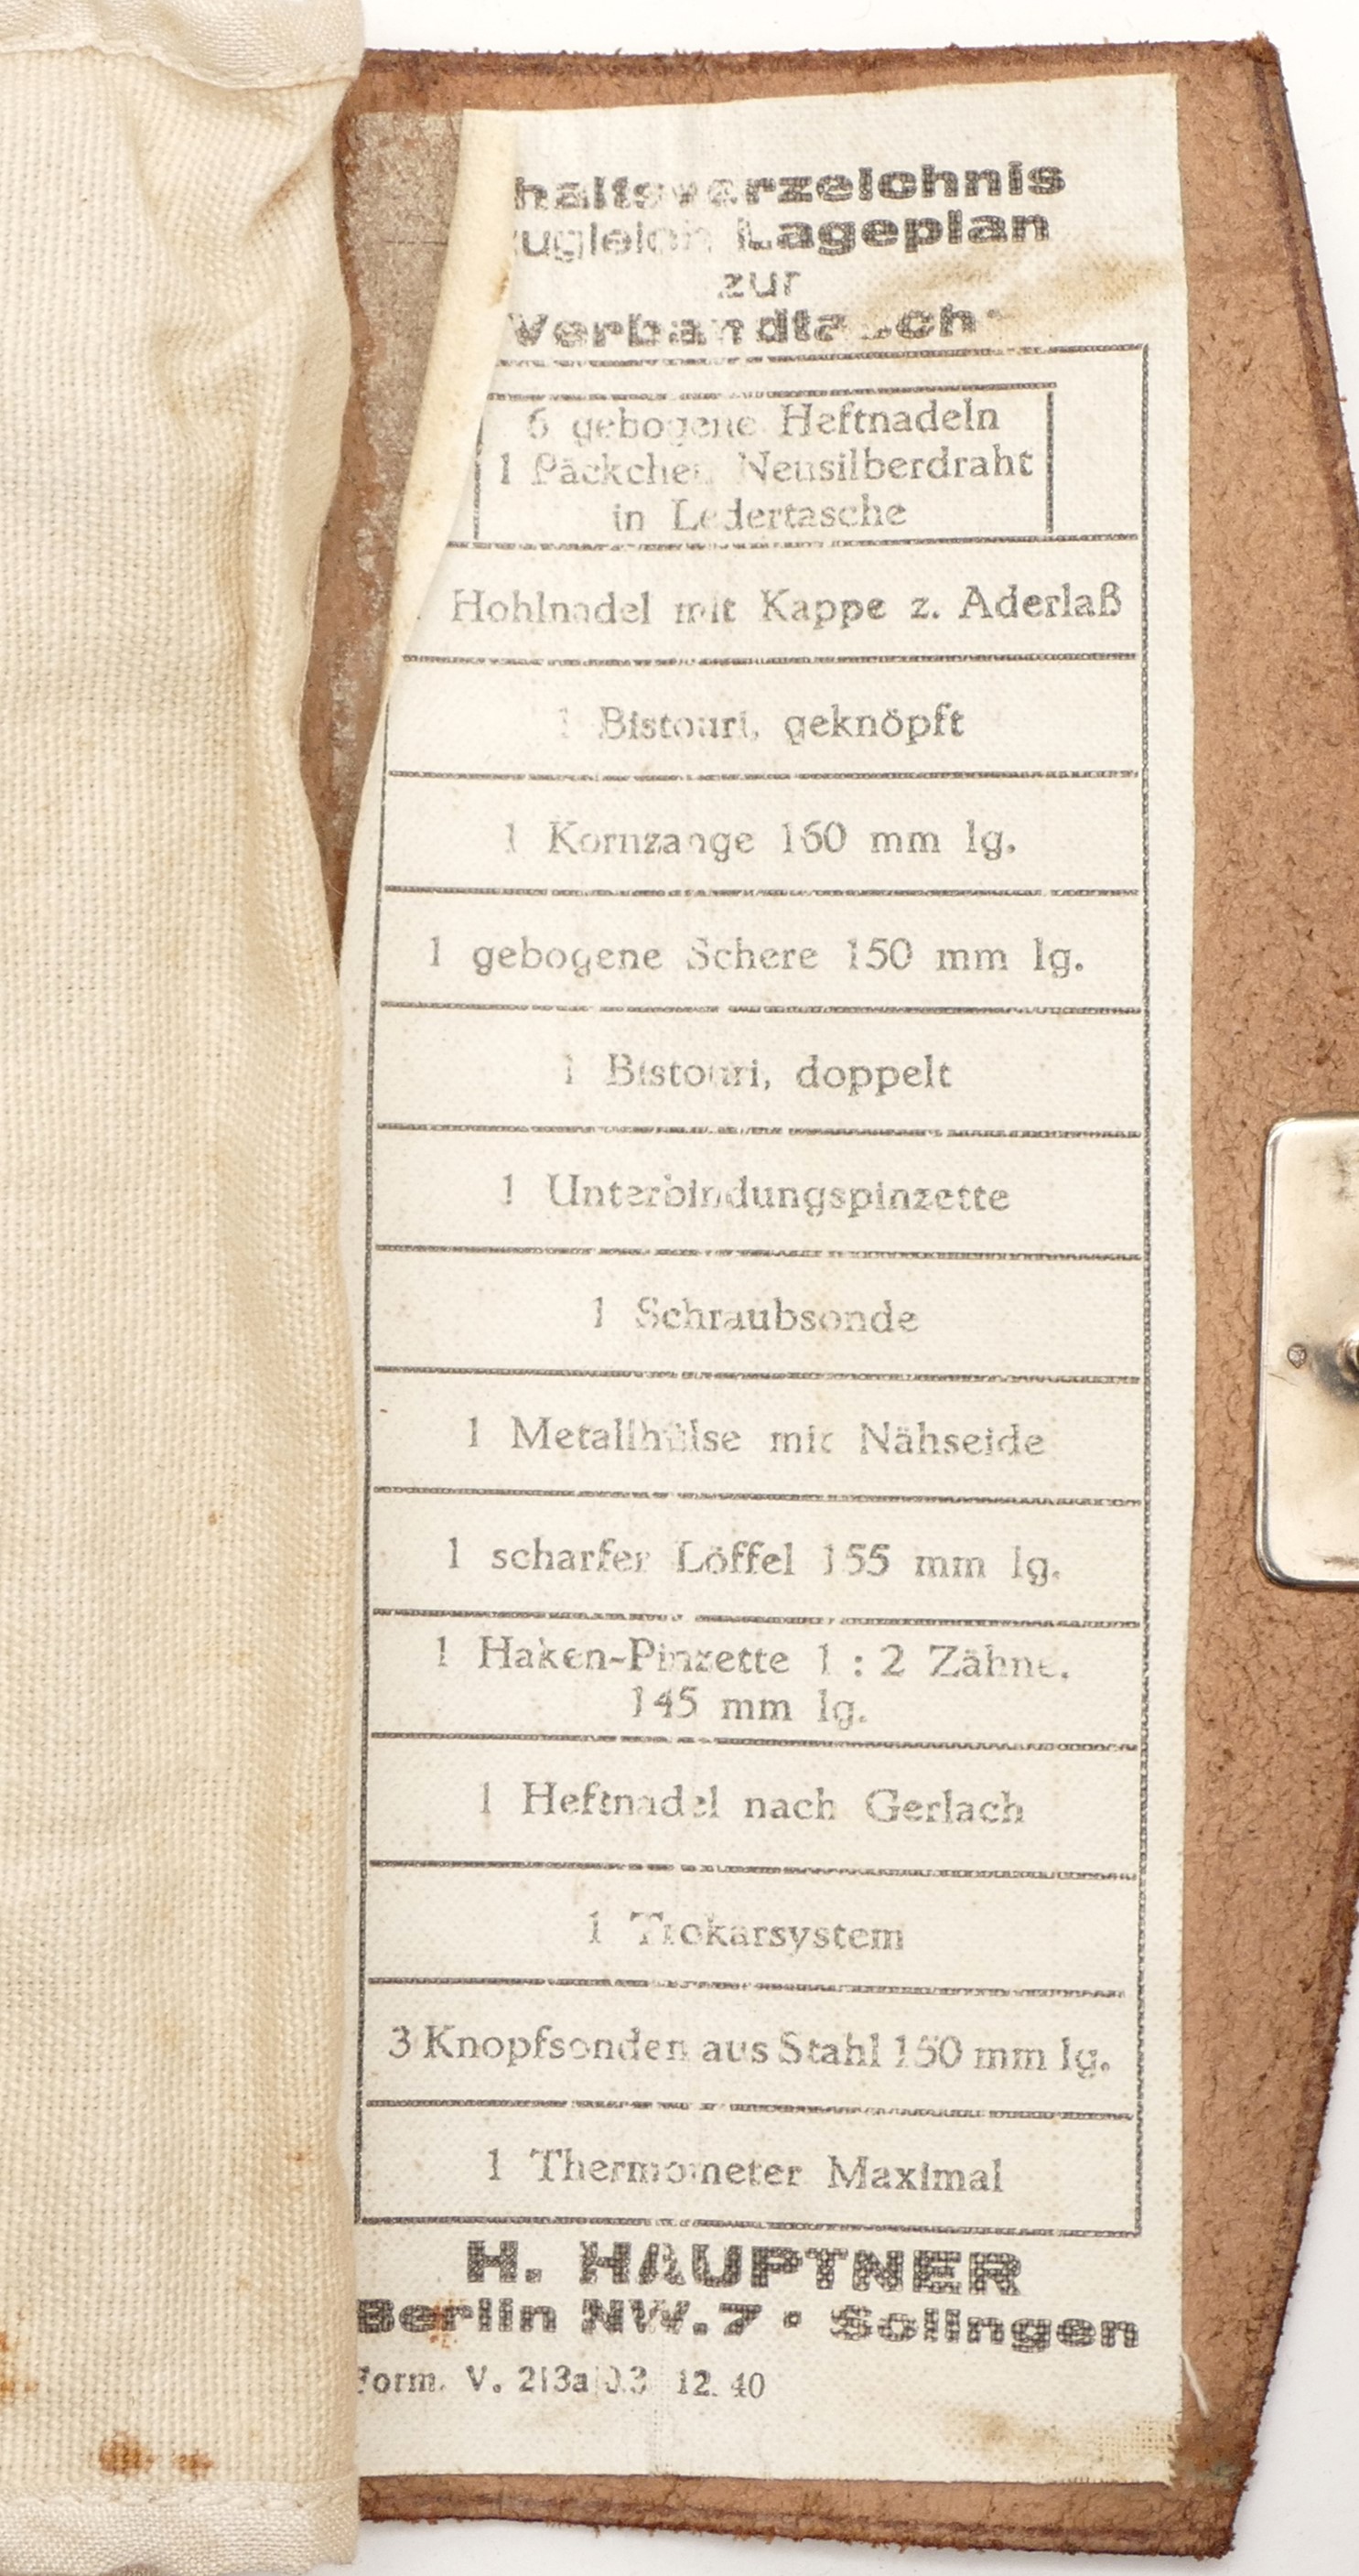 haltsverzeichnis
zugleich Lageplan
zur
Verbandtasche
6 gebogene Heftnadeln
1 Päckchen Neusilberdraht
in Ledertasche
Hohlnadel mit Kappe z. Aderlaß
1 Bistouri, geknöpft
1 Kornzange 160 mm lg.
1 gebogene Schere 150 mm lg.
1 Bistouri, doppelt
1 Unterbindungspinzette
1 Schraubsonde
1 Metallhülse mit Nähseide
1 scharfer Löffel 155 mm lg.
1 Haken-Pinzette 1 : 2 Zähne.
145 mm lg.
1 Heftnadel nach Gerlach
1 Trokarsystem
3 Knopfsonden aus Stahl 150 mm lg.
1 Thermometer Maximal
H. HAUPTNER
Berlin NW. 7 · Solingen
Form. V. 12. 40